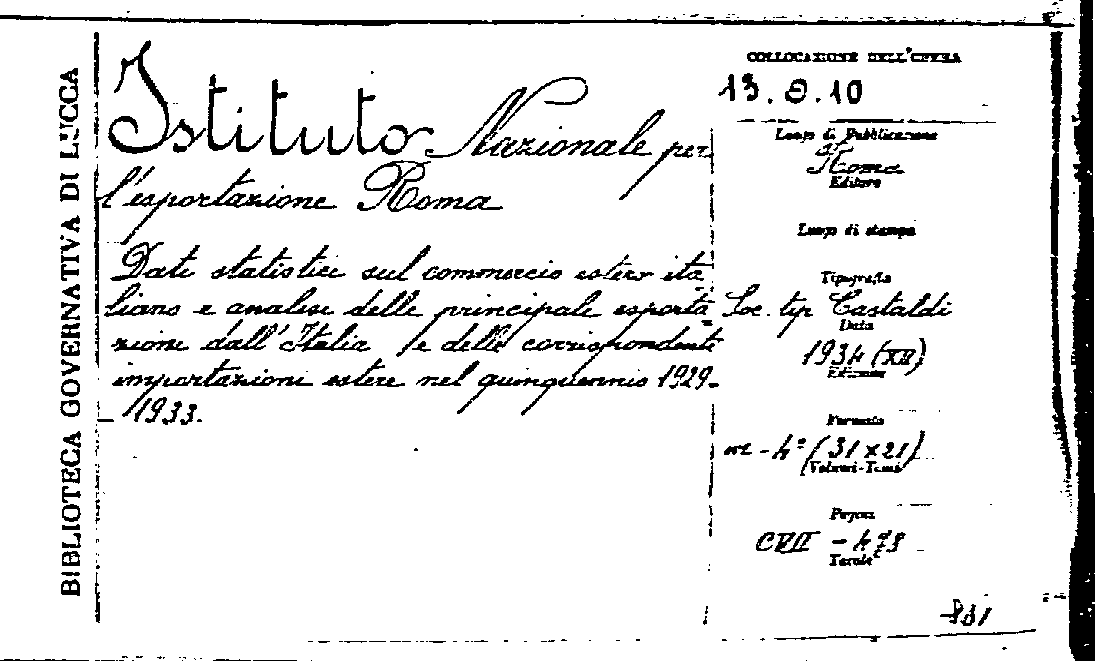 BIBLIOTECA GOVERNATIVA DI LUCCA
Istituto Nazionale per
l'esportazione Roma
Dati statistici sul commercio estero ita
liano e analisi delle principale esporta
zione dall'Italia e delle corrispondente
importazioni estere nel quinquennio 1929-
- 1933.
COLLOCAZIONE DELL'OPERA
13. O. 10
Luogo di Pubblicazione
Roma
Editore
Luogo di stampa
Tipografia
Soc. tip Castaldi
Data
1934 (XII)
Edizione
Formato
in - 4° (31 x 21)
Volumi-Tomi
Pagine
CVII - 473
Tavole